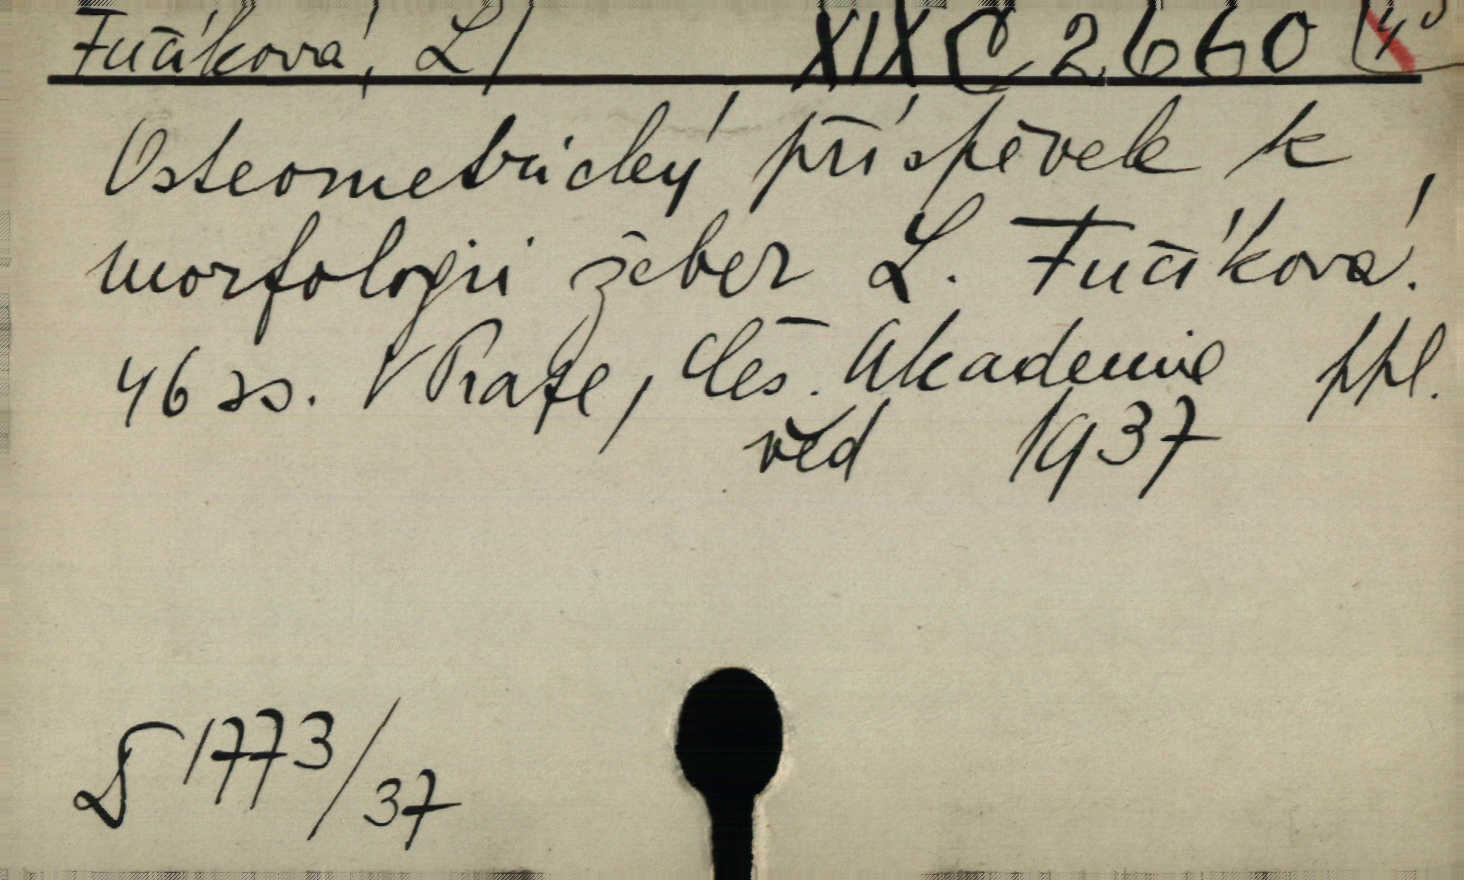 Fučíková, L/ XIX C 2660
Osteometrický příspěvek k
morfologii žeber L. Fučíková.
46 ss. V Praze, Čes. Akademie ppl.
věd 1937
D 1773/37